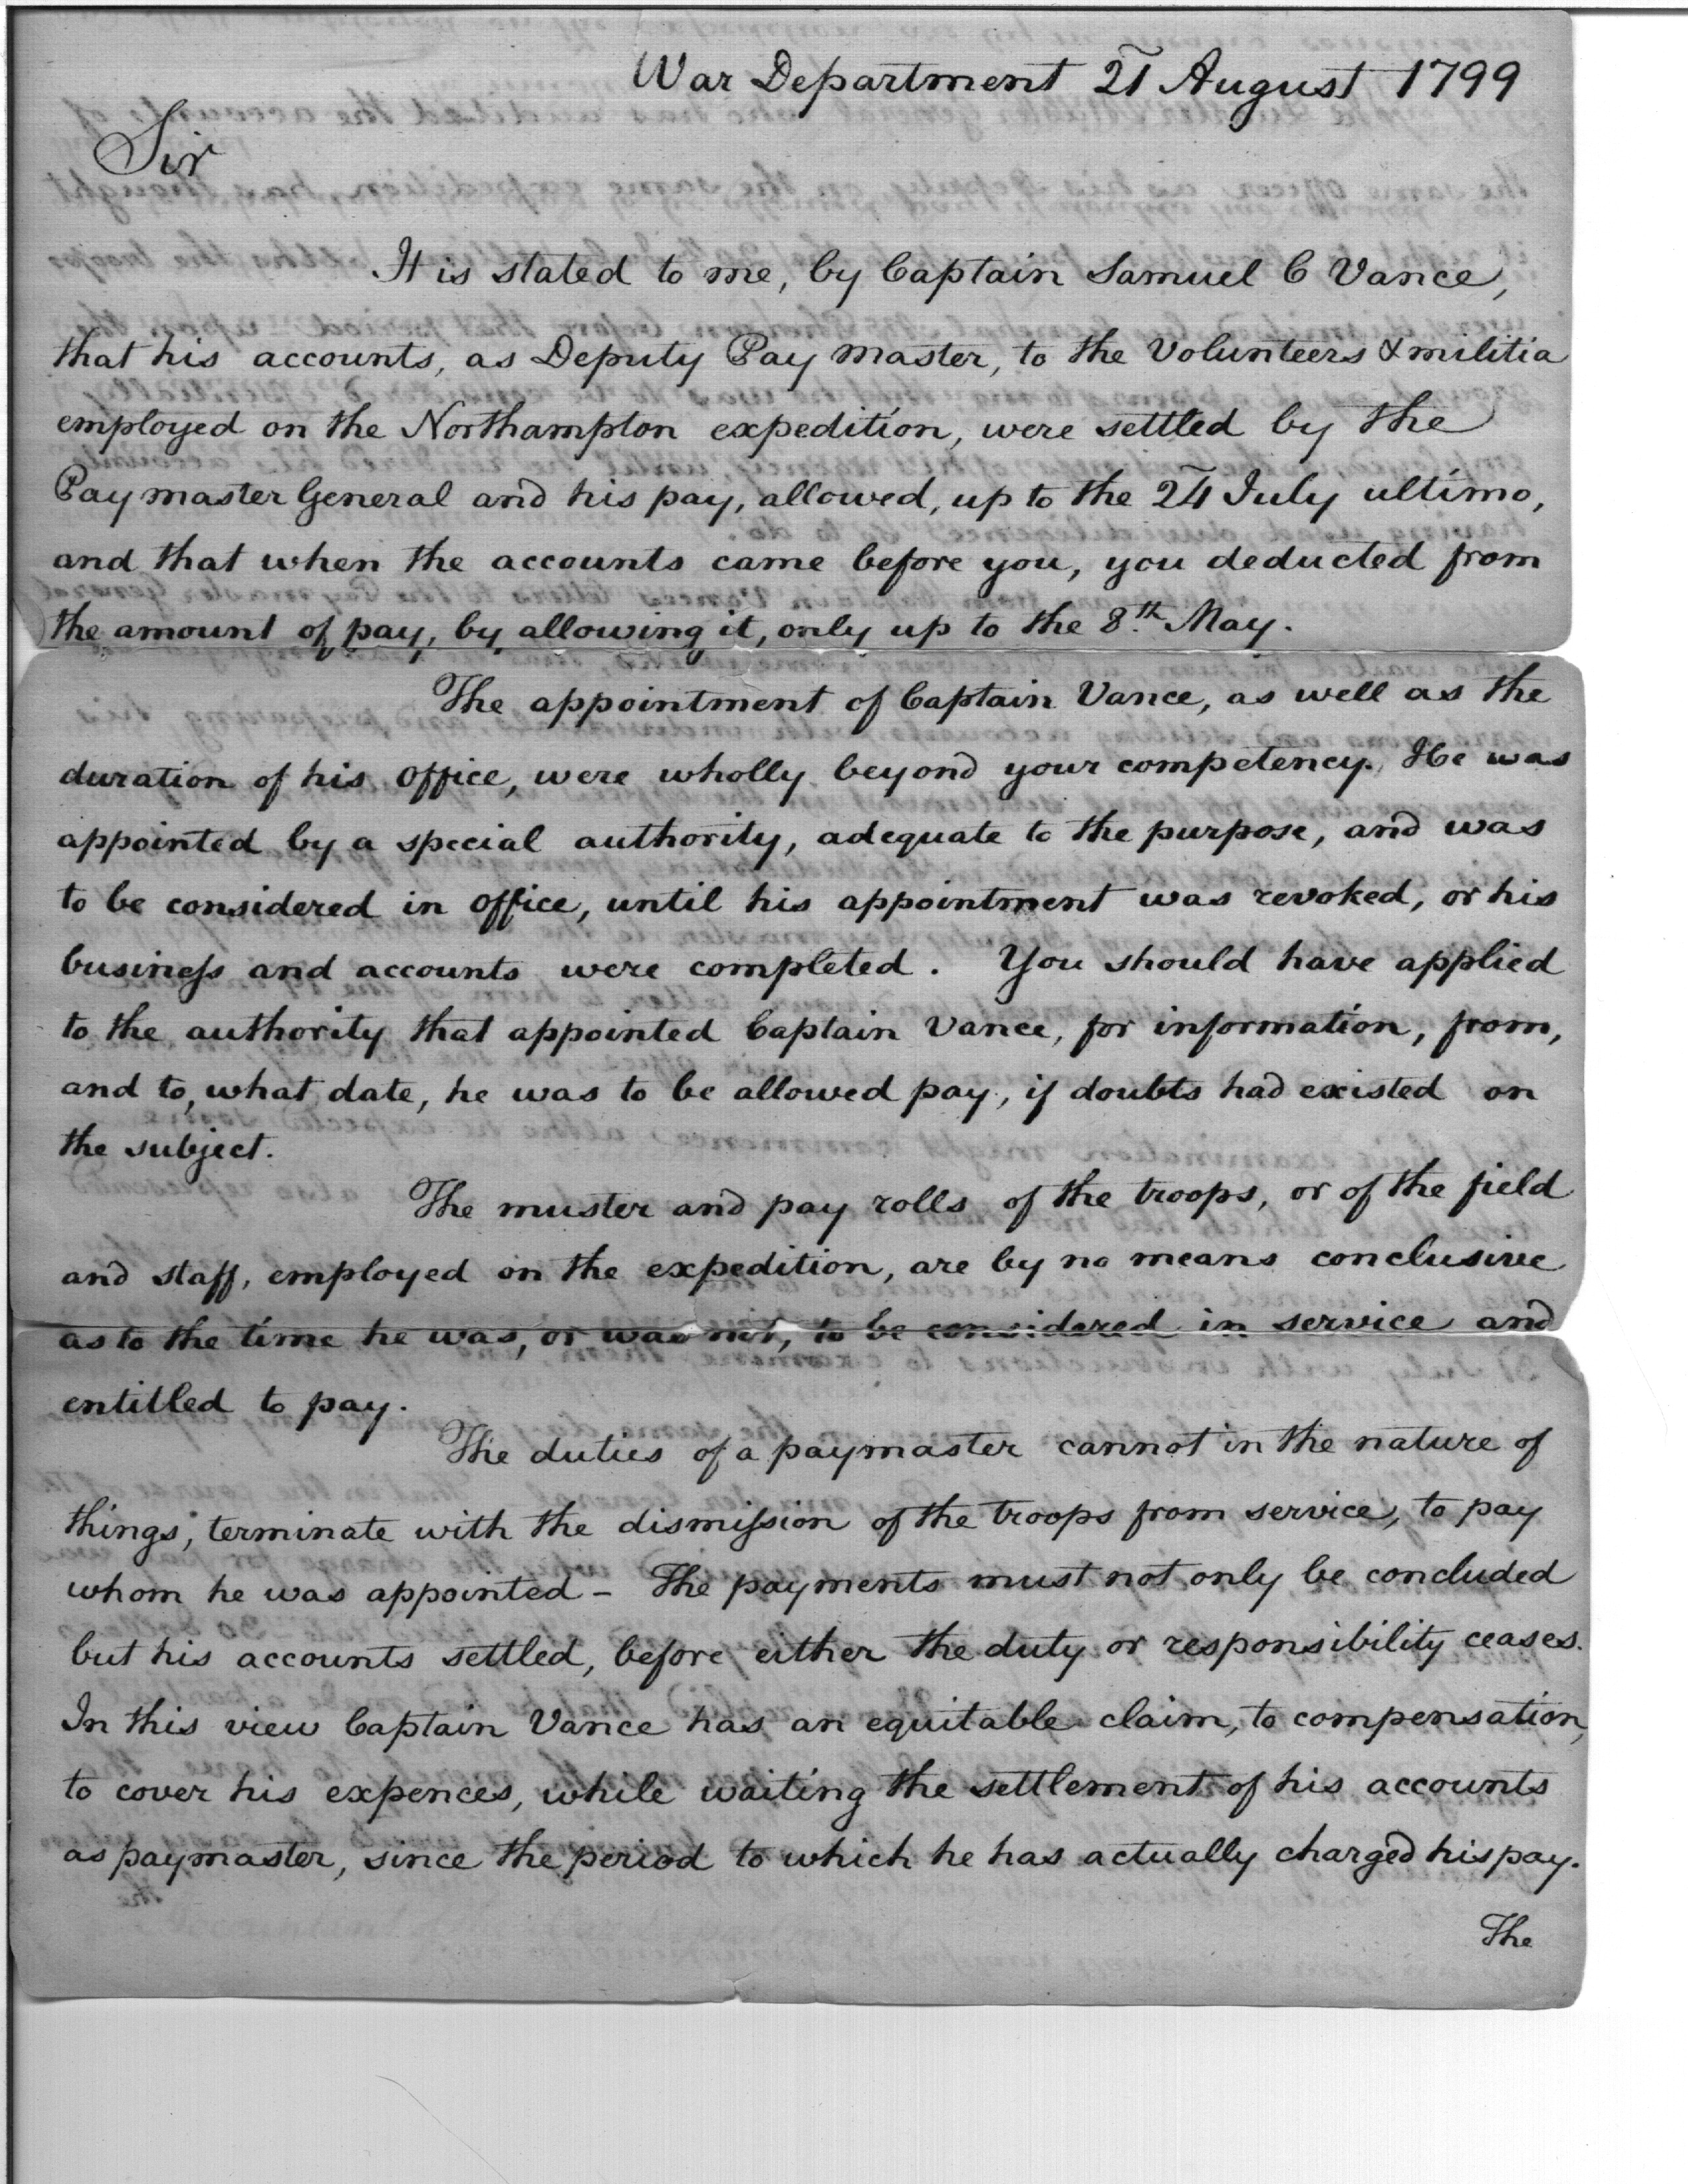 War Department 21 August 1799
Sir
It is stated to me, by Captain Samuel C Vance,
that his accounts, as Deputy Pay master, to the Volunteers & militia
employed on the Northampton expedition, were settled by the
Paymaster General and his pay, allowed, up to the 24 July ultimo,
and that when the accounts came before you, you deducted from
the amount of pay, by allowing it, only up to the 8th May.
The appointment of Captain Vance, as well as the
duration of his office, were wholly beyond your competency. He was
appointed by a special authority, adequate to the purpose, and was
to be considered in office, until his appointment was revoked, or his
business and accounts were completed. You should have applied
to the authority that appointed Captain Vance, for information, from,
and to, what date, he was to be allowed pay, if doubts had existed on
the subject.
The muster and pay rolls of the troops, or of the field
and staff, employed on the expedition, are by no means conclusive
as to the time he was, or was not, to be considered in service and
entitled to pay.
The duties of a paymaster cannot in the nature of
things, terminate with the dismission of the troops from service, to pay
whom he was appointed - The payments must not only be concluded
but his accounts settled, before either the duty or responsibility ceases.
In this view Captain Vance has an equitable claim, to compensation,
to cover his expences, while waiting the settlement of his accounts
as paymaster, since the period to which he has actually charged his pay.
The